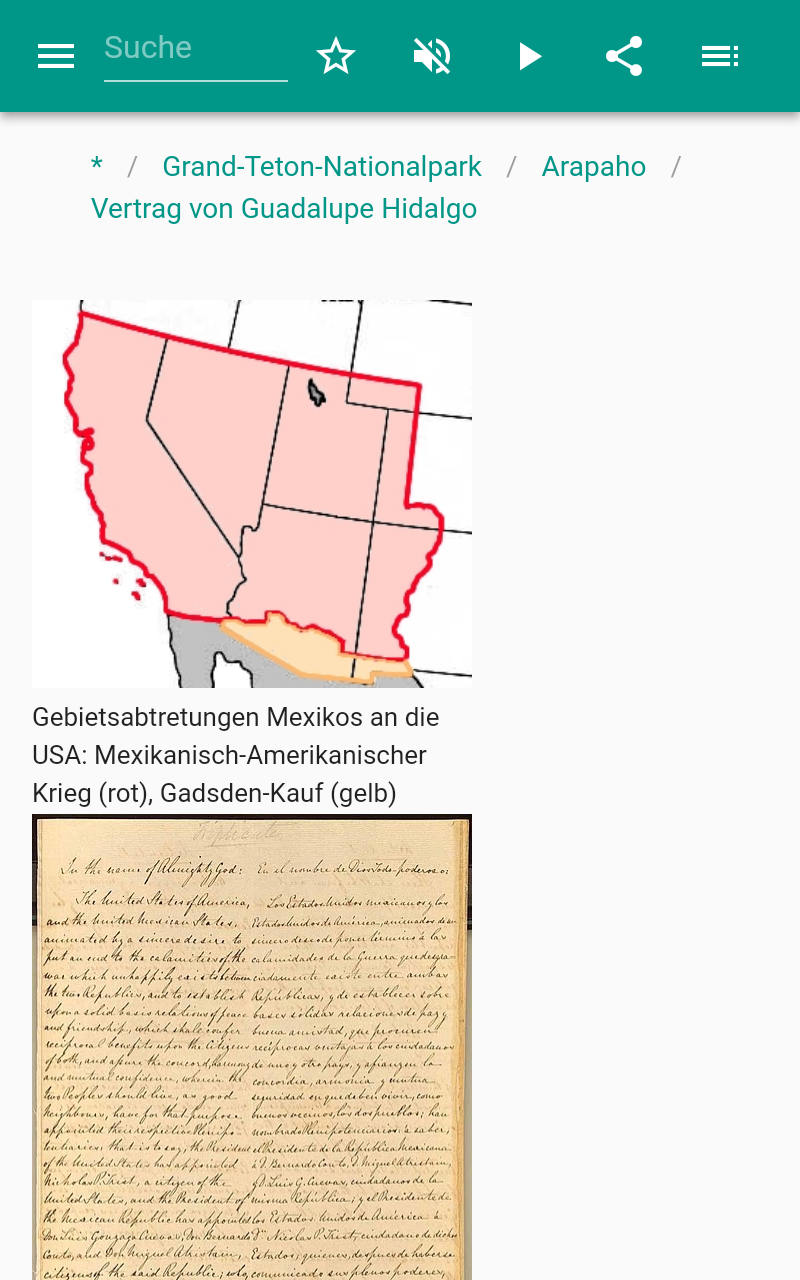 Suche
* / Grand-Teton-Nationalpark / Arapaho /
Vertrag von Guadalupe Hidalgo
Gebietsabtretungen Mexikos an die
USA: Mexikanisch-Amerikanischer
Krieg (rot), Gadsden-Kauf (gelb)
Triplicate
In the name of Almighty God:
The United States of America,
and the United Mexican States,
animated by a sincere desire to
put an end to the calamities of the
war which unhappily exists between
the two Republics, and to establish
upon a solid basis relations of peace
and friendship, which shall confer
reciprocal benefits upon the Citizens
of both, and assure the concord, harmony
and mutual confidence, wherein the
two Peoples should live, as good
Neighbours, have for that purpose
appointed their respective Plenipo-
tentiaries: that is to say, the President
of the United States has appointed
Nicholas P. Trist, a citizen of the
United States, and the President of
the Mexican Republic has appointed
Don Luis Gonzaga Cuevas, Don Bernardo
Couto, and Don Miguel Atristain,
citizens of the said Republic; who,
En el nombre de Dios Todo-poderoso:
Los Estados Unidos mexicanos y los
Estados Unidos de América, animados de un
sincero deseo de poner término á las
calamidades de la Guerra que desgra-
ciadamente existe entre ambas
Repúblicas, y de establecer sobre
bases sólidas relaciones de paz y
buena amistad, que procuren
recíprocas ventajas á los ciudadanos
de uno y otro pays, y afiancen la
concordia, armonia y mutua
seguridad en que deben vivir, como
buenos vecinos, los dos pueblos; han
nombrado Plenipotenciarios: á saber,
el Presidente de la República Mexicana
á D. Bernardo Couto, D. Miguel Atristain,
y D. Luis G. Cuevas, ciudadanos de la
misma República; y el Presidente de
los Estados Unidos de América á
Dn. Nicolas P. Trist, ciudadano de dichos
Estados; quienes, despues de haberse
comunicado sus plenos poderes,